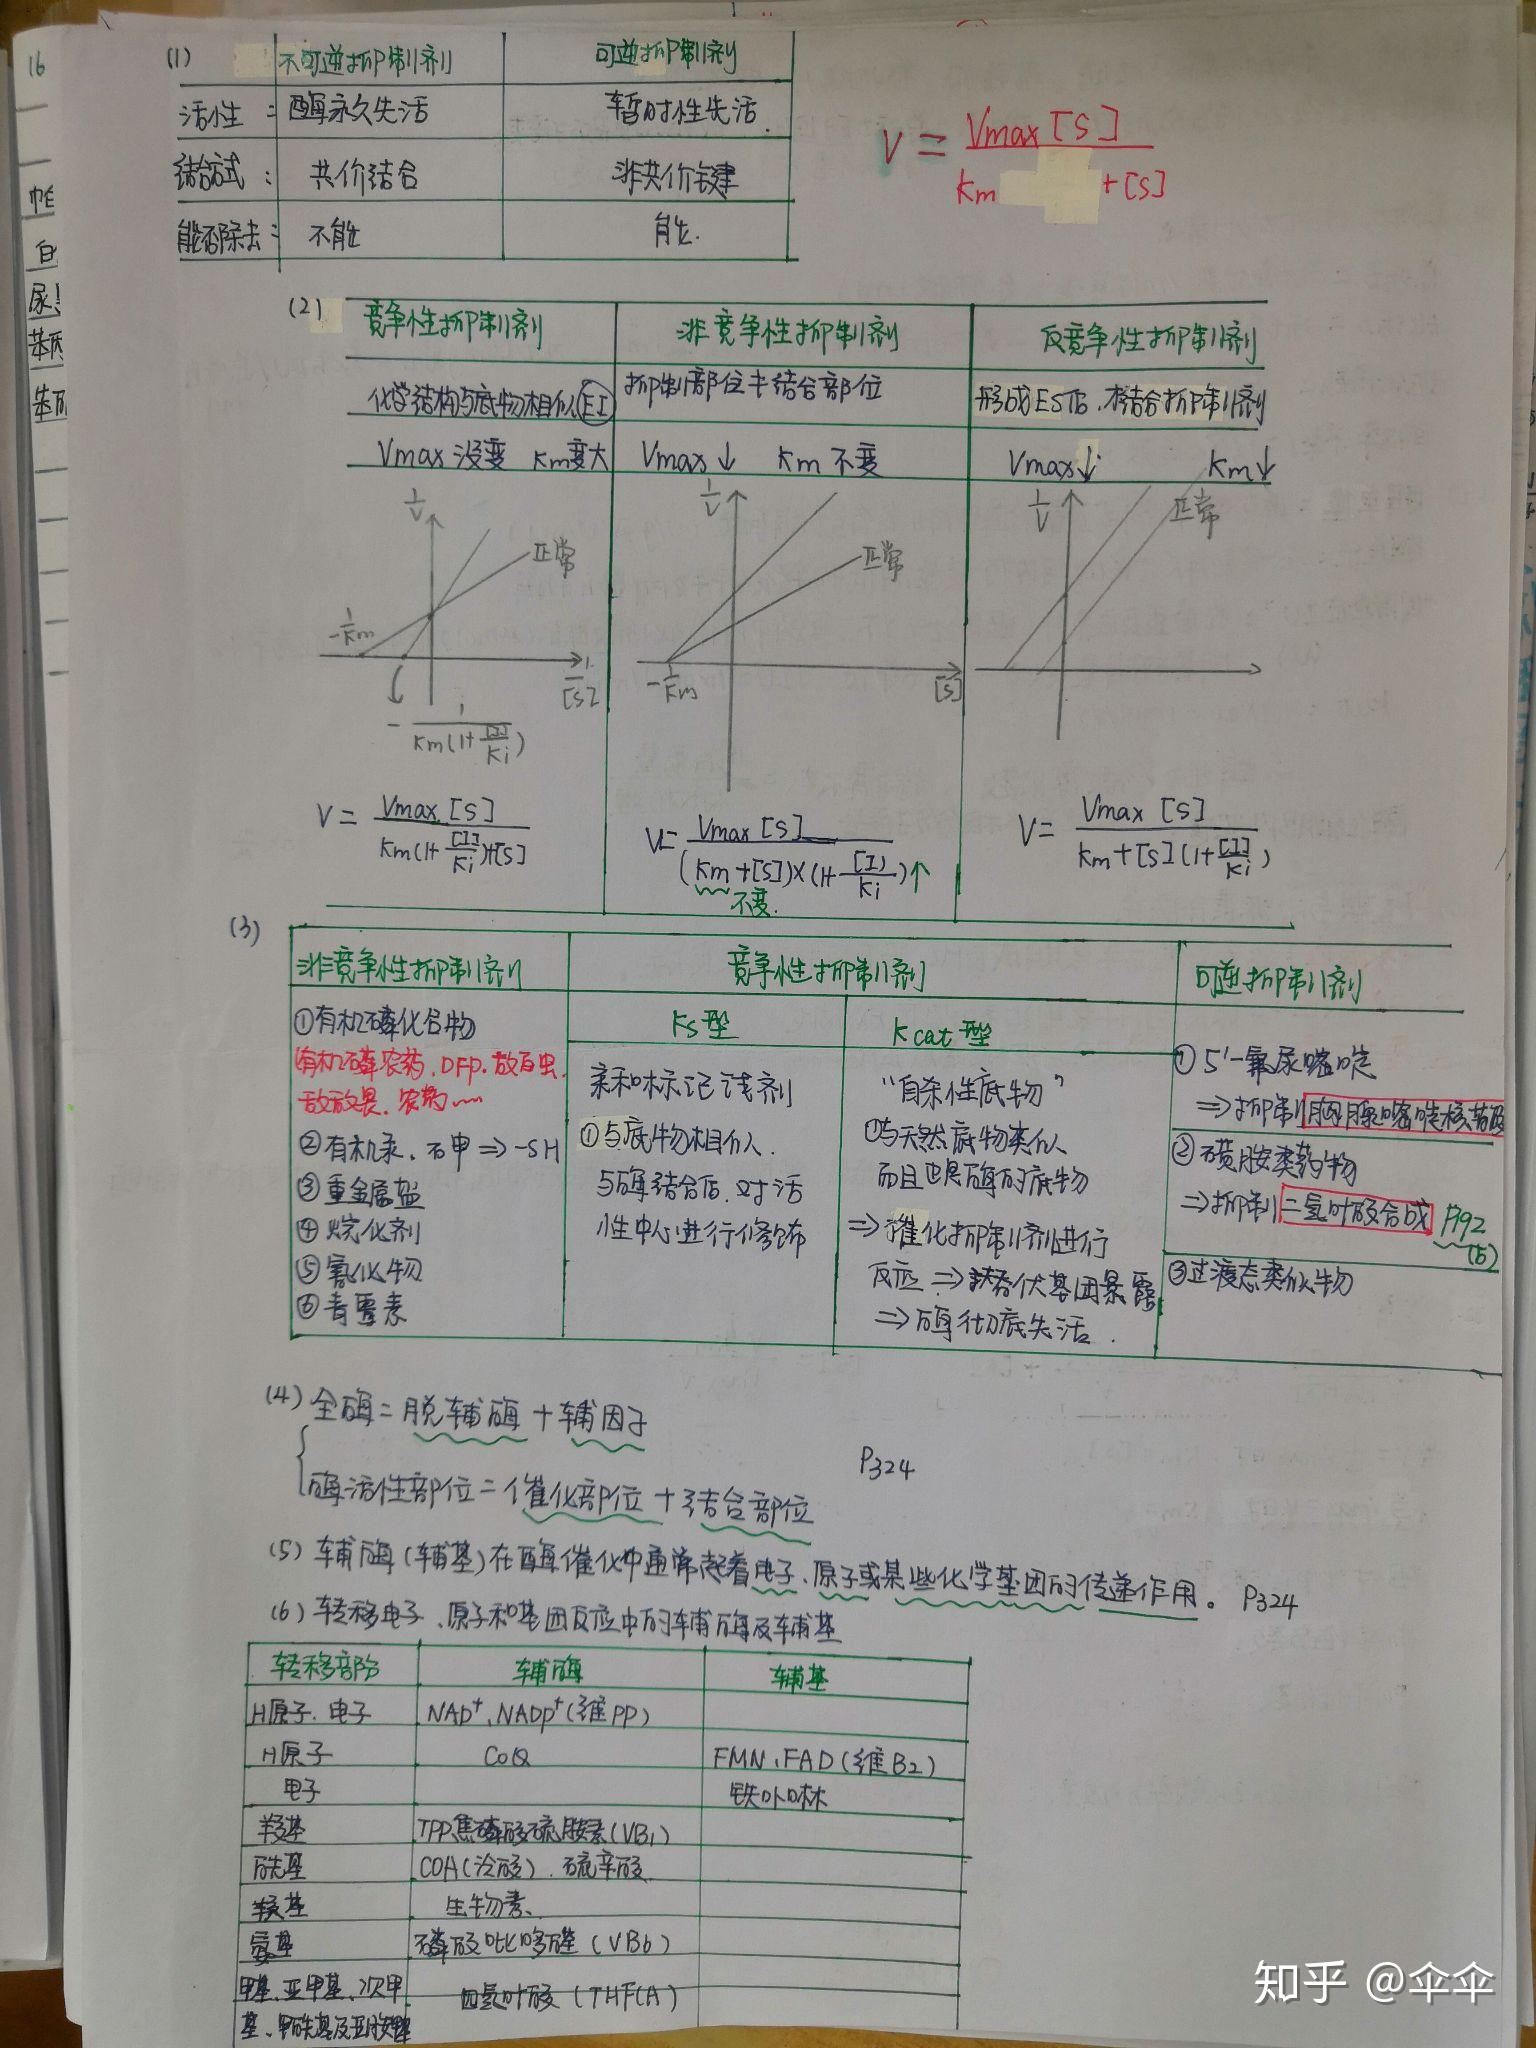 16
(1) 不可逆抑制剂 可逆抑制剂
活性: 酶永久失活 暂时性失活.
结合方式: 共价结合 非共价键
能否除去: 不能 能.
V = Vmax[S] / Km + [S]
(2) 竞争性抑制剂 非竞争性抑制剂 反竞争性抑制剂
化学结构与底物相似 EI 抑制部位≠结合部位 形成ES后.才结合抑制剂
Vmax没变 Km变大 Vmax↓ Km不变 Vmax↓ Km↓
1/V 正常 1/V 正常 1/V 正常
-1/Km 1/[S] -1/Km [S]
-1/Km(1+[I]/Ki)
V = Vmax[S] / Km(1+[I]/Ki)+[S] V= Vmax[S] / (Km+[S])×(1+[I]/Ki)↑ V= Vmax[S] / Km+[S](1+[I]/Ki)
不变.
(3)
非竞争性抑制剂 竞争性抑制剂 可逆抑制剂
Ks型 Kcat型
①有机磷化合物
有机磷农药.DFP.敌百虫.
敌敌畏.农药……
②有机汞.石申⇒-SH
③重金属盐
④烷化剂
⑤氰化物
⑥青霉素
亲和标记试剂
①与底物相似.
与酶结合后.对活
性中心进行修饰
“自杀性底物”
①与天然底物类似
而且也是酶的底物
⇒催化抑制剂进行
反应⇒潜伏基团暴露
⇒酶彻底失活.
①5'-氟尿嘧啶
⇒抑制胸腺嘧啶核苷酸
②磺胺类药物
⇒抑制二氢叶酸合成 P192
(5)
③过渡态类似物
(4) 全酶=脱辅酶+辅因子
酶活性部位=催化部位+结合部位 P324
(5) 辅酶(辅基)在酶催化中通常起着电子.原子或某些化学基团的传递作用。 P324
(6) 转移电子.原子和基团反应中的辅酶及辅基
转移部份 辅酶 辅基
H原子.电子 NAD⁺、NADP⁺(维PP)
H原子 CoQ FMN、FAD(维B2)
电子 铁卟啉
TPP焦磷酸硫胺素(VB₁)
酰基 COA(泛酸).硫辛酸
羧基 生物素、
氨基 磷酸吡哆醛(VB6)
甲基、亚甲基、次甲 四氢叶酸(THFCA)
基、甲酰基及亚胺
知乎 @伞伞